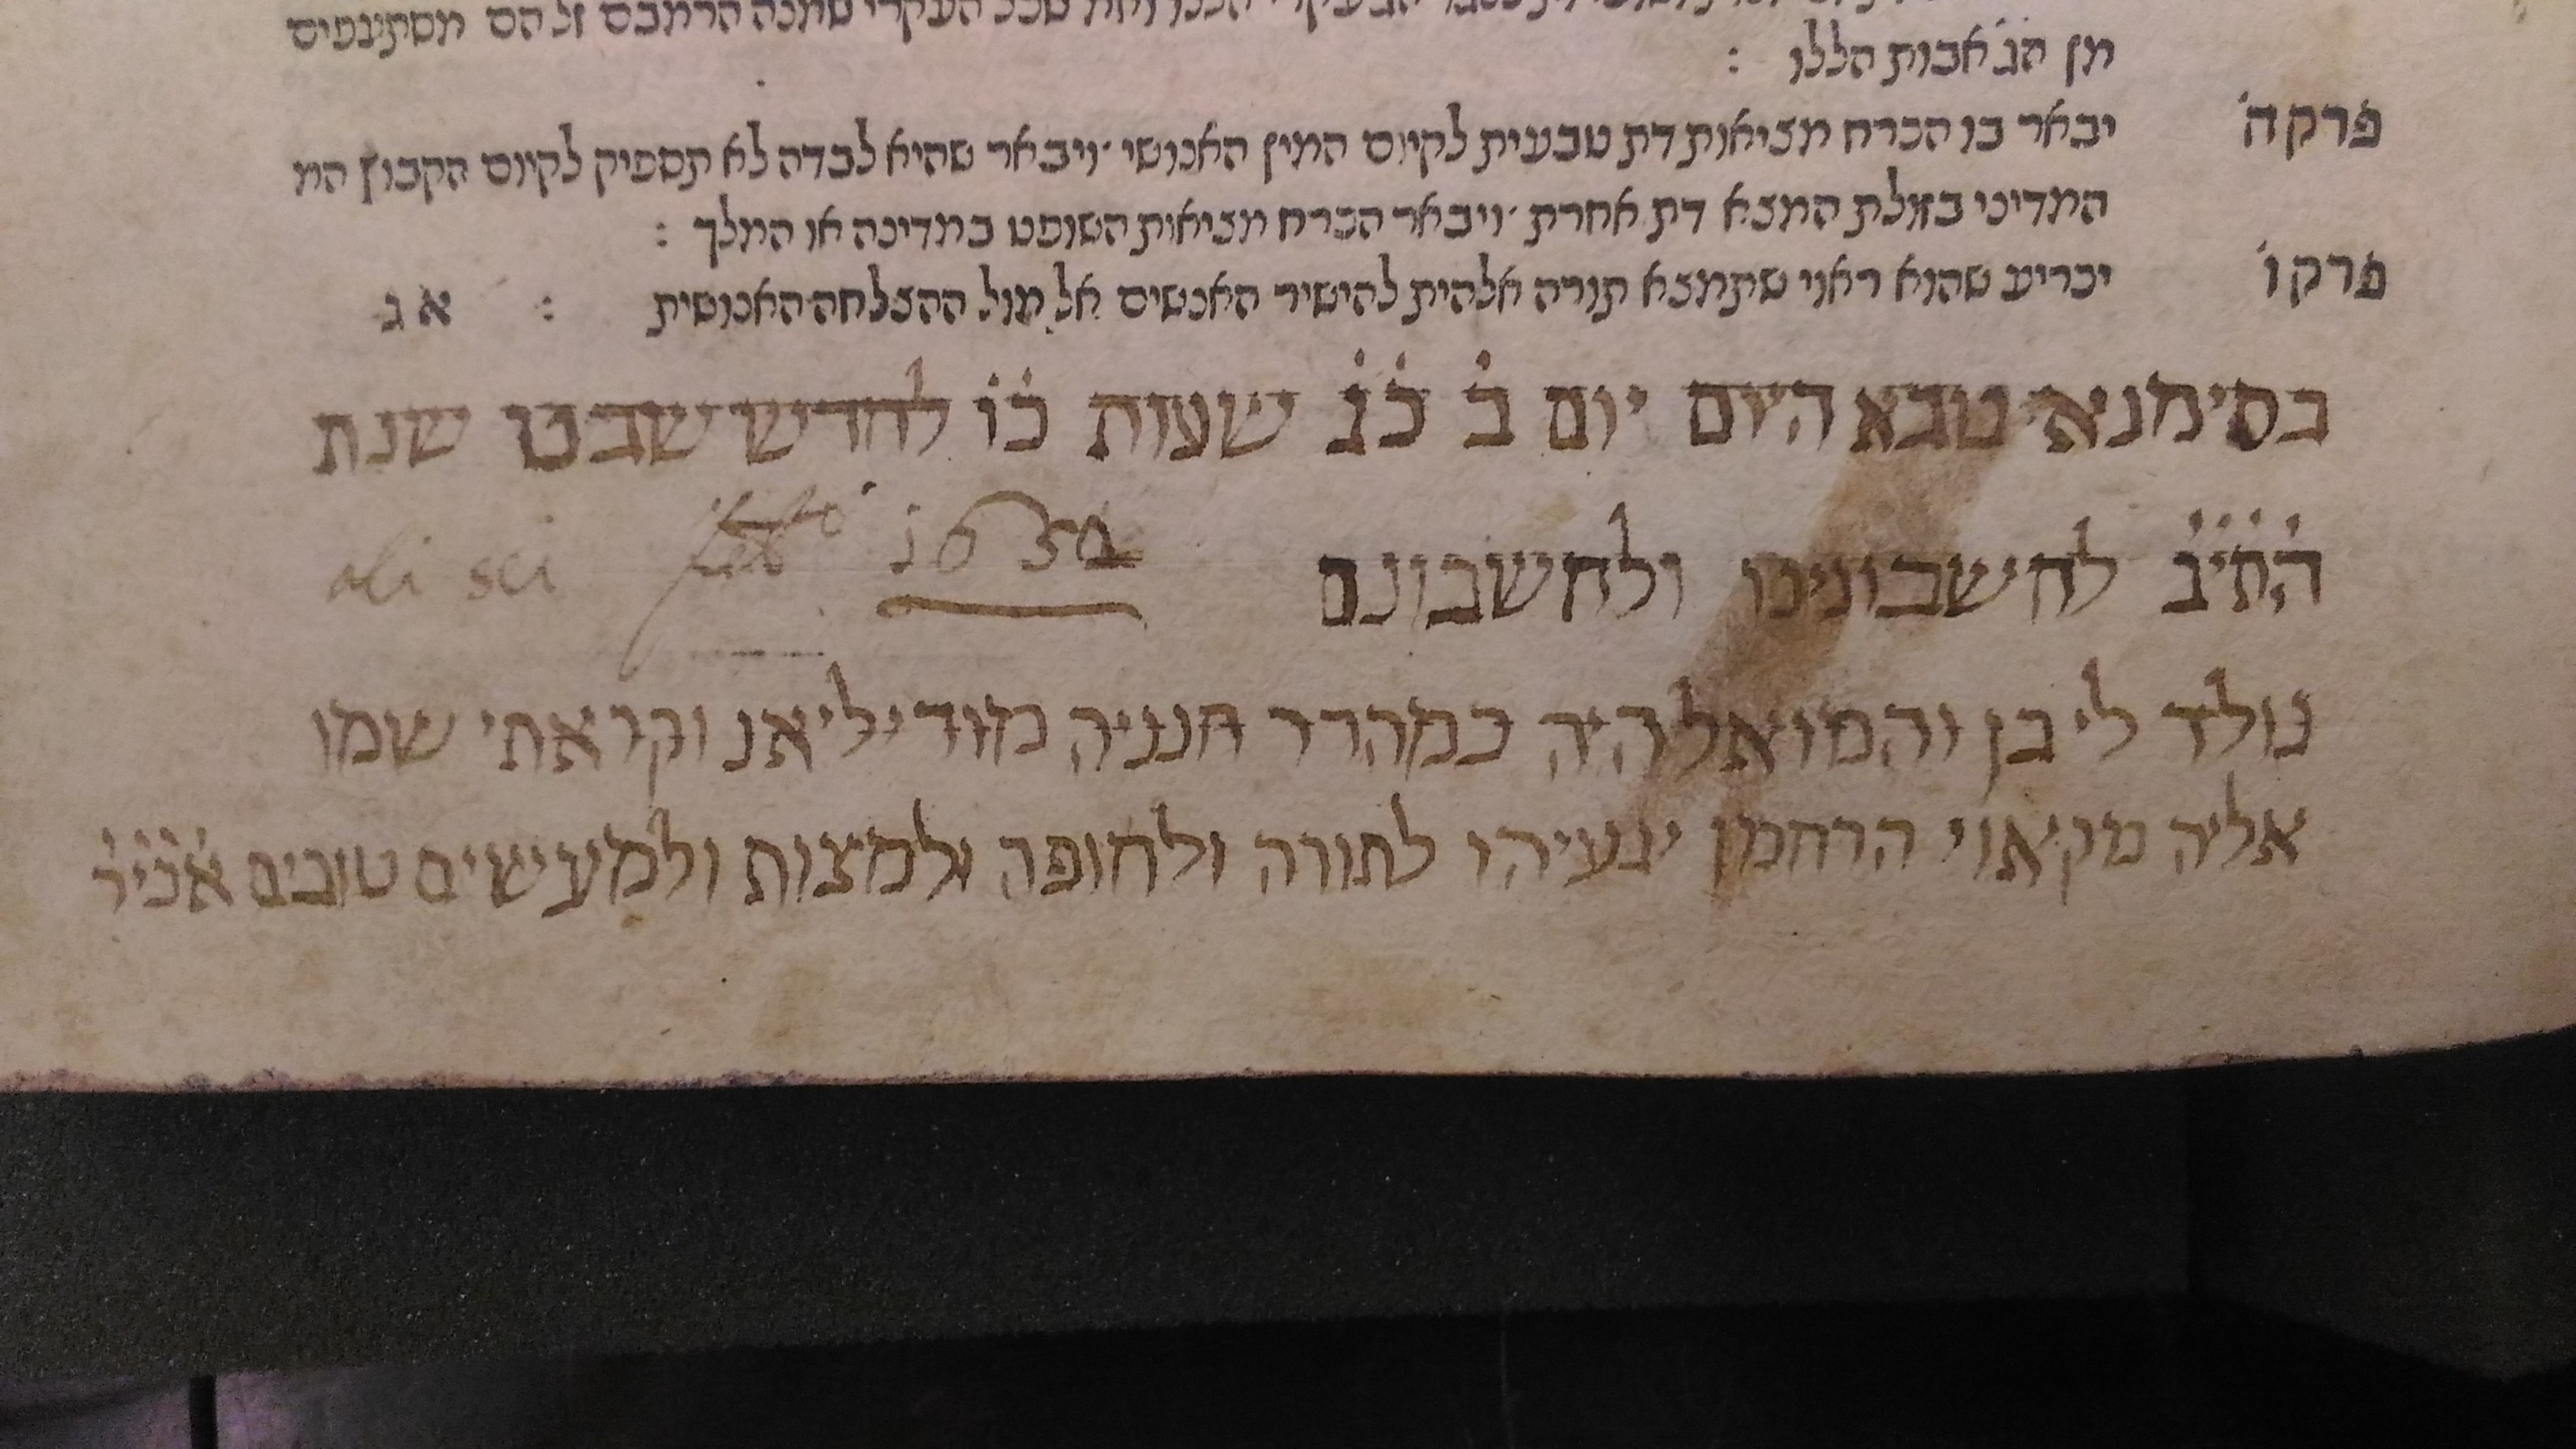 מן הג'אבות הללו :
פרק ה' יבאר בו הכרח מציאות דת טבעית לקיום המין האנושי · ויבאר שהיא לבדה לא תספיק לקיום הקבוץ המ
המדיני בזולת המצא דת אחרת · ויבאר הכרח מציאות השופט במדינה או המלך :
פרק ו' יכריע שהוא ראוי שתמצא תורה אלהית להישיר האנשים אל מול ההצלחה האנושית : א ג
בסימנא טבא היום יום ב' כ'ג' שעות כ'ו' לחדש שבט שנת
ה'ת'י'ב' לחשבונינו ולחשבונם 1652 alli sei
נולד לי בן והמואל היה כמהרר חנניה מודיליאנו וקראתי שמו
אליה מקיאוי הרחמן יגעיהו לתורה ולחופה ולמצות ולמעשים טובים א'כ'י'ר'